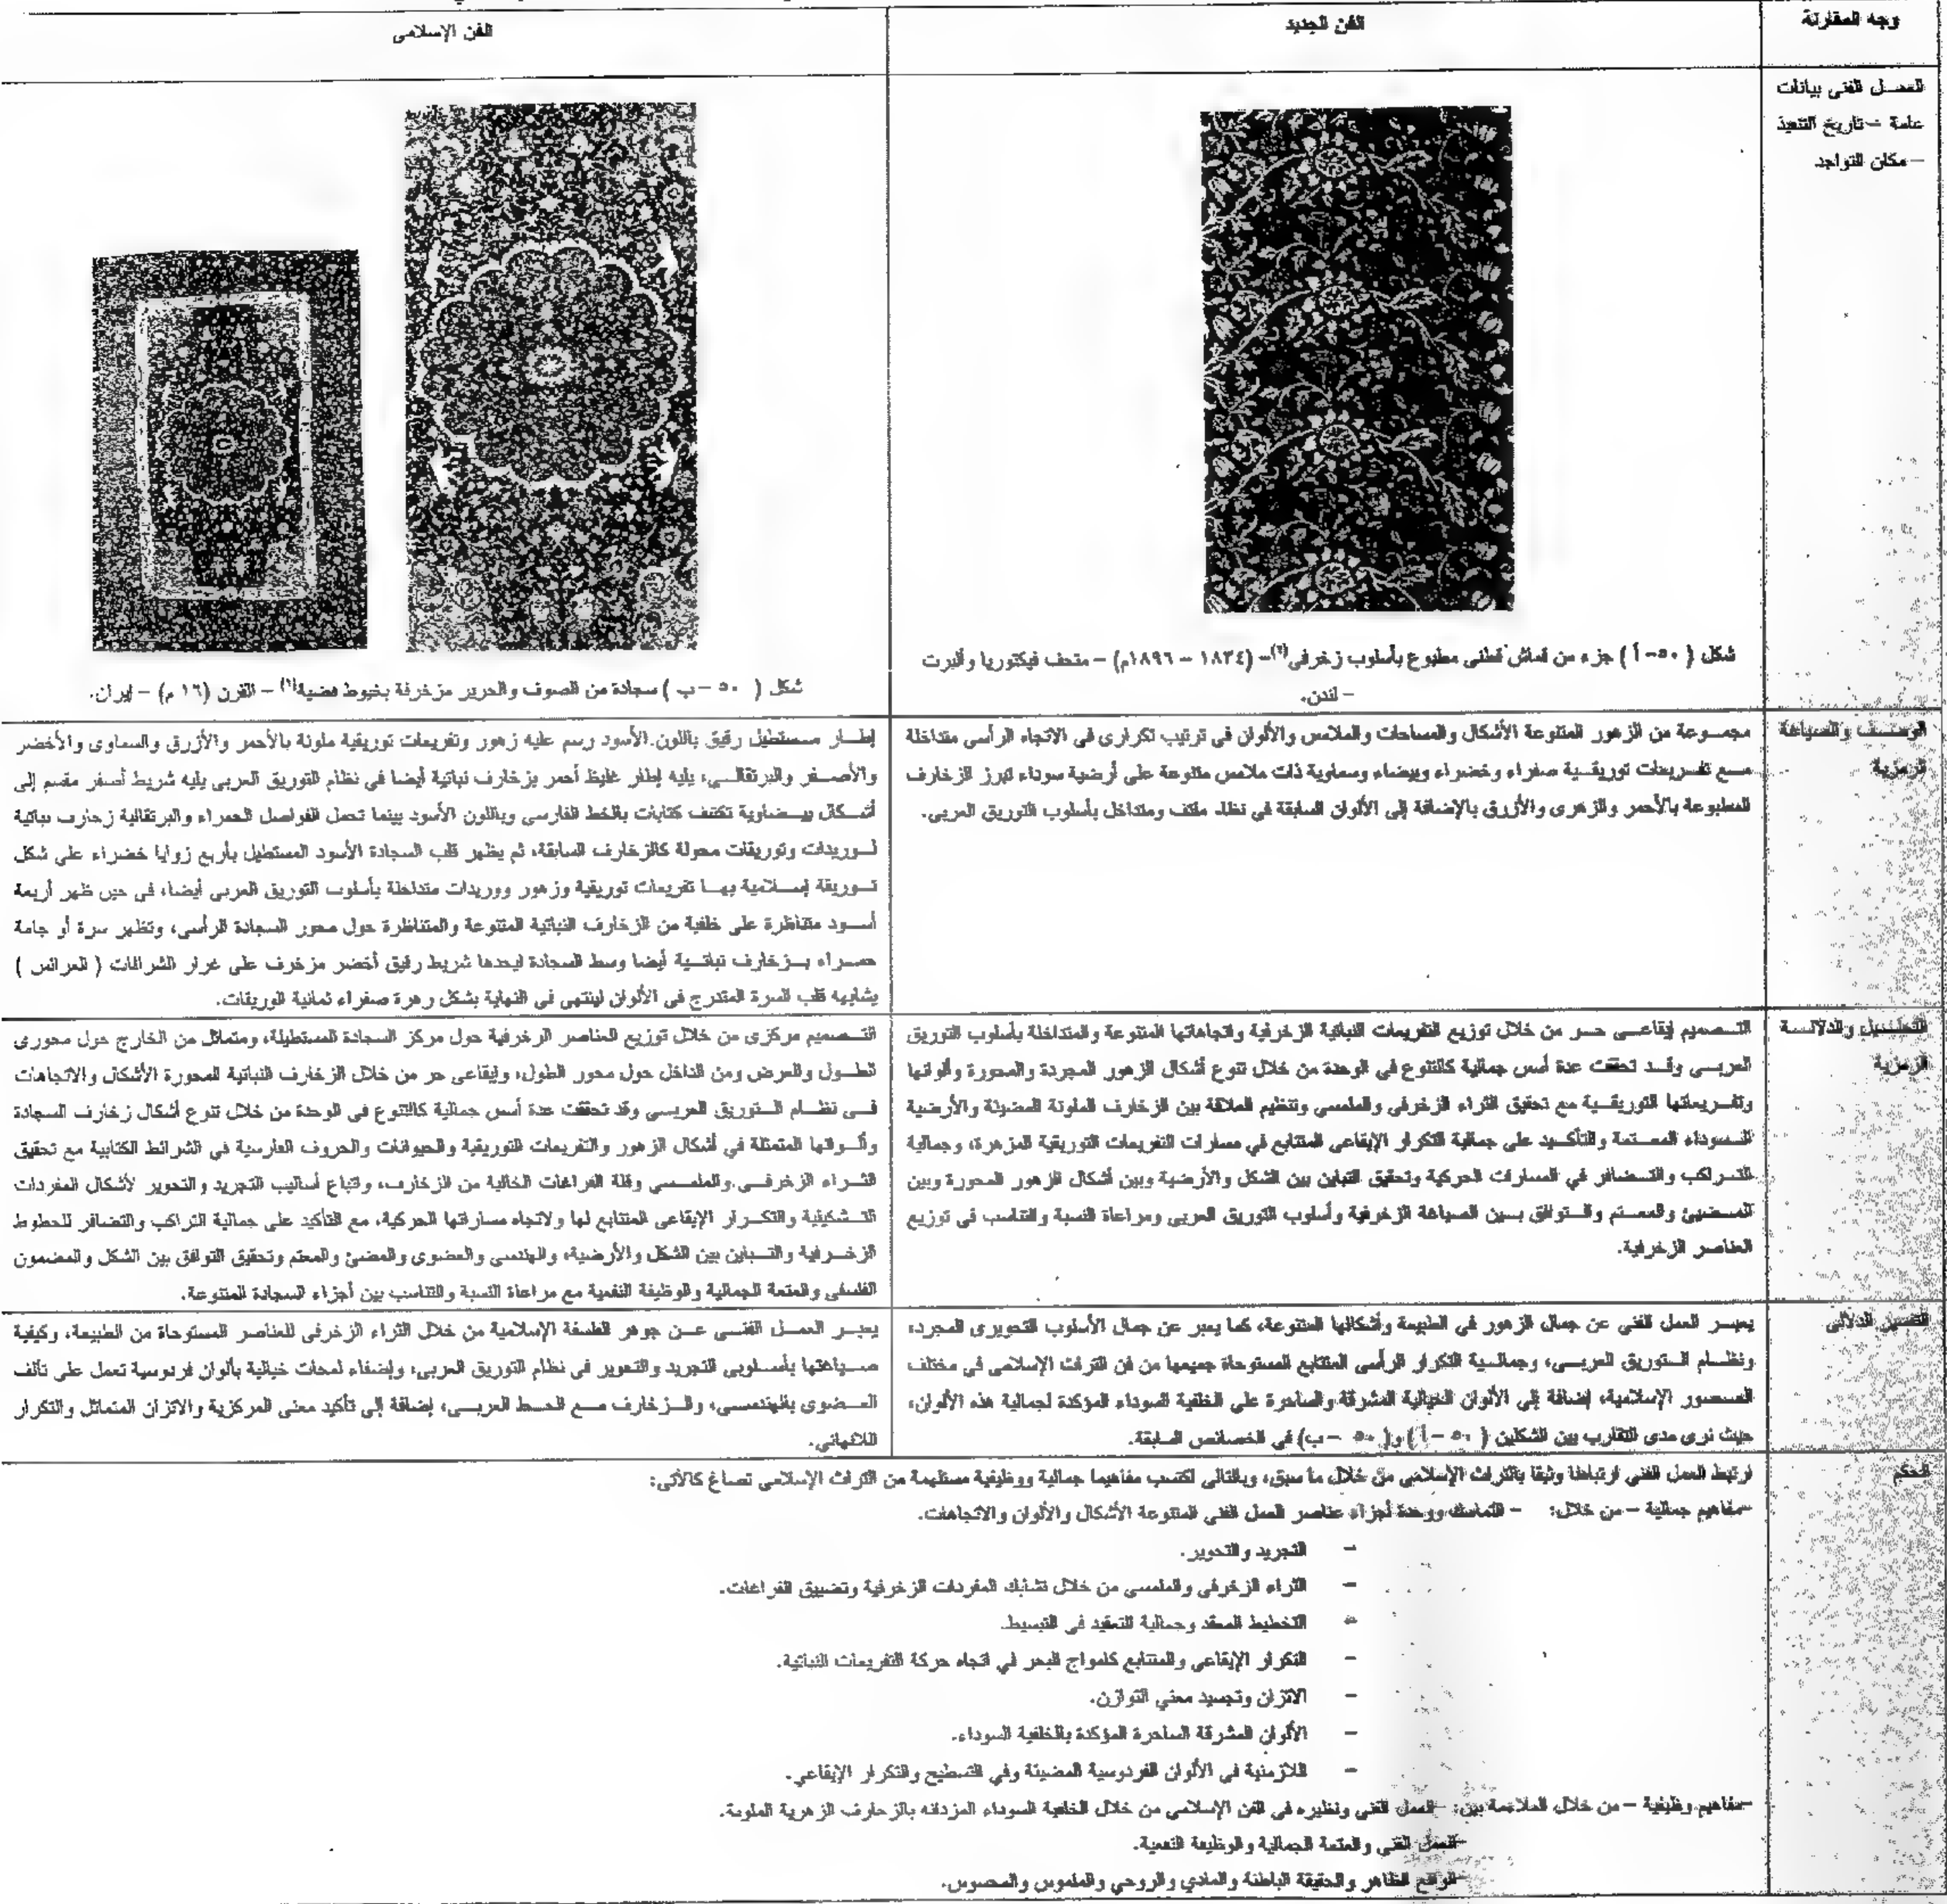 وجه المقارنة
الفن الجديد
الفن الإسلامى
العمـل الفنى بيانات
عامة – تاريخ التنفيذ
– مكان التواجد
شكل ( ٥٠- أ ) جزء من قماش قطنى مطبوع بأسلوب زخرفى(٢)– (١٨٣٤ – ١٨٩٦م) – متحف فيكتوريا وألبرت
– لندن.
شكل ( ٥٠ – ب ) سجادة من الصوف والحرير مزخرفة بخيوط فضية(١) – القرن (١٦ م) – إيران.
الوصـف والصياغة
الرمزية
مجمـوعة من الزهور المتنوعة الأشكال والمساحات والملامس والألوان فى ترتيب تكرارى فى الاتجاه الرأسى متداخلة
مـع تفـريعات توريقـية صفراء وخضراء وبيضاء وسماوية ذات ملامس متنوعة على أرضية سوداء تبرز الزخارف
المطبوعة بالأحمر والزهرى والأزرق بالإضافة إلى الألوان السابقة فى نظام ملتف ومتداخل بأسلوب التوريق العربى.
إطـار مـستطيل رقيق باللون الأسود رسم عليه زهور وتفريعات توريقية ملونة بالأحمر والأزرق والسماوى والأخضر
والأصـفر والبرتقالـي، يليه إطار غليظ أحمر بزخارف نباتية أيضا فى نظام التوريق العربى يليه شريط أصفر مقسم إلى
أشـكال بيـضاوية تكتنف كتابات بالخط الفارسى وباللون الأسود بينما تحمل الفواصل الحمراء والبرتقالية زخارف نباتية
لـوريدات وتوريقات محولة كالزخارف السابقة، ثم يظهر قلب السجادة الأسود المستطيل بأربع زوايا خضراء على شكل
تـوريقة إسـلامية بهـا تفريعات توريقية وزهور ووريدات متداخلة بأسلوب التوريق العربى أيضا، فى حين ظهر أربعة
أسـود متناظرة على خلفية من الزخارف النباتية المتنوعة والمتناظرة حول محور السجادة الرأسى، وتظهر سرة أو جامة
حمـراء بـزخارف نباتـية أيضا وسط السجادة ليحدها شريط رقيق أخضر مزخرف على غرار الشرافات ( العرائس )
يشابهه قلب السرة المتدرج فى الألوان لينتهى فى النهاية بشكل زهرة صفراء ثمانية الوريقات.
التحلـيل والدلالـة
الرمزية
التـصميم إيقاعـى حـر من خلال توزيع التفريعات النباتية الزخرفية واتجاهاتها المتنوعة والمتداخلة بأسلوب التوريق
العربـى وقـد تحققت عدة أسس جمالية كالتنوع فى الوحدة من خلال تنوع أشكال الزهور المجردة والمحورة وألوانها
وتفـريعاتها التوريقـية مع تحقيق الثراء الزخرفى والملمسى وتنظيم العلاقة بين الزخارف الملونة المضيئة والأرضية
السـوداء المعـتمة والتأكـيد على جمالية التكرار الإيقاعى المتتابع في مسارات التفريعات التوريقية المزهرة، وجمالية
التـراكب والتـضافر في المسارات الحركية وتحقيق التباين بين الشكل والأرضية وبين أشكال الزهور المحورة وبين
المـضيئ والمعـتم والـتوافق بـين الصياغة الزخرفية وأسلوب التوريق العربى ومراعاة النسبة والتناسب فى توزيع
العناصر الزخرفية.
التـصميم مركزى من خلال توزيع العناصر الزخرفية حول مركز السجادة المستطيلة، ومتماثل من الخارج حول محورى
الطـول والعرض ومن الداخل حول محور الطول، وإيقاعى حر من خلال الزخارف النباتية المحورة الأشكال والاتجاهات
فـى نظـام الـتوريق العربـى وقد تحققت عدة أسس جمالية كالتنوع فى الوحدة من خلال تنوع أشكال زخارف السجادة
وألـوانها المتمثلة في أشكال الزهور والتفريعات التوريقية والحيوانات والحروف الفارسية في الشرائط الكتابية مع تحقيق
الثـراء الزخرفـى والملمـسي وقلة الفراغات الخالية من الزخارف، واتباع أساليب التجريد والتحوير لأشكال المفردات
التـشكيلية والتكـرار الإيقاعى المتتابع لها ولاتجاه مساراتها الحركية، مع التأكيد على جمالية التراكب والتضافر للخطوط
الزخـرفية والتـباين بين الشكل والأرضية، والهندسى والعضوى والمضئ والمعتم وتحقيق التوافق بين الشكل والمضمون
الفلسفى والمتعة الجمالية والوظيفة النفعية مع مراعاة النسبة والتناسب بين أجزاء السجادة المتنوعة.
التفسير الدلالى
يعبـر العمل الفنى عن جمال الزهور فى الطبيعة وأشكالها المتنوعة، كما يعبر عن جمال الأسلوب التحويرى المجرد،
ونظـام الـتوريق العربـى، وجمالـية التكرار الرأسى المتتابع المستوحاة جميعها من فن التراث الإسلامى في مختلف
العـصور الإسلامية، إضافة إلى الألوان الخيالية المشرقة والساحرة على الخلفية السوداء المؤكدة لجمالية هذه الألوان،
حيث نرى مدى التقارب بين الشكلين ( ٥٠ – أ ) و( ٥٠ – ب) فى الخصائص السابقة.
يعبـر العمـل الفنـى عـن جوهر الفلسفة الإسلامية من خلال الثراء الزخرفى للعناصر المستوحاة من الطبيعة، وكيفية
صـياغتها بأسـلوبى التجريد والتحوير فى نظام التوريق العربى، وإضفاء لمحات خيالية بألوان فردوسية تعمل على تآلف
العـضوى بالهندسـى، والـزخارف مـع الخـط العربـى، إضافة إلى تأكيد معنى المركزية والاتزان المتماثل والتكرار
اللانهائى.
الحكم
ارتبط العمل الفنى ارتباطا وثيقا بالتراث الإسلامى من خلال ما سبق، وبالتالى اكتسب مفاهيما جمالية ووظيفية مستلهمة من التراث الإسلامى تصاغ كالآتى:
-مفاهيم جمالية – من خلال: – التماسك ووحدة أجزاء عناصر العمل الفنى المتنوعة الأشكال والألوان والاتجاهات.
– التجريد والتحوير.
– الثراء الزخرفى والملمسى من خلال تشابك المفردات الزخرفية وتضييق الفراغات.
– التخطيط المعقد وجمالية التعقيد فى التبسيط.
– التكرار الإيقاعي والمتتابع كأمواج البحر في اتجاه حركة التفريعات النباتية.
– الاتزان وتجسيد معني التوازن.
– الألوان المشرقة الساحرة المؤكدة بالخلفية السوداء.
– اللازمنية في الألوان الفردوسية المضيئة وفي التسطيح والتكرار الإيقاعي.
-مفاهيم وظيفية – من خلال الملاءمة بين: -العمل الفني ونظيره في الفن الإسلامي من خلال الخلفية السوداء المزدانه بالزخارف الزهرية الملونة.
-العمل الفني والمتعة الجمالية والوظيفة النفعية.
-الواقع الظاهر والحقيقة الباطنة والمادي والروحي والملموس والمحسوس.